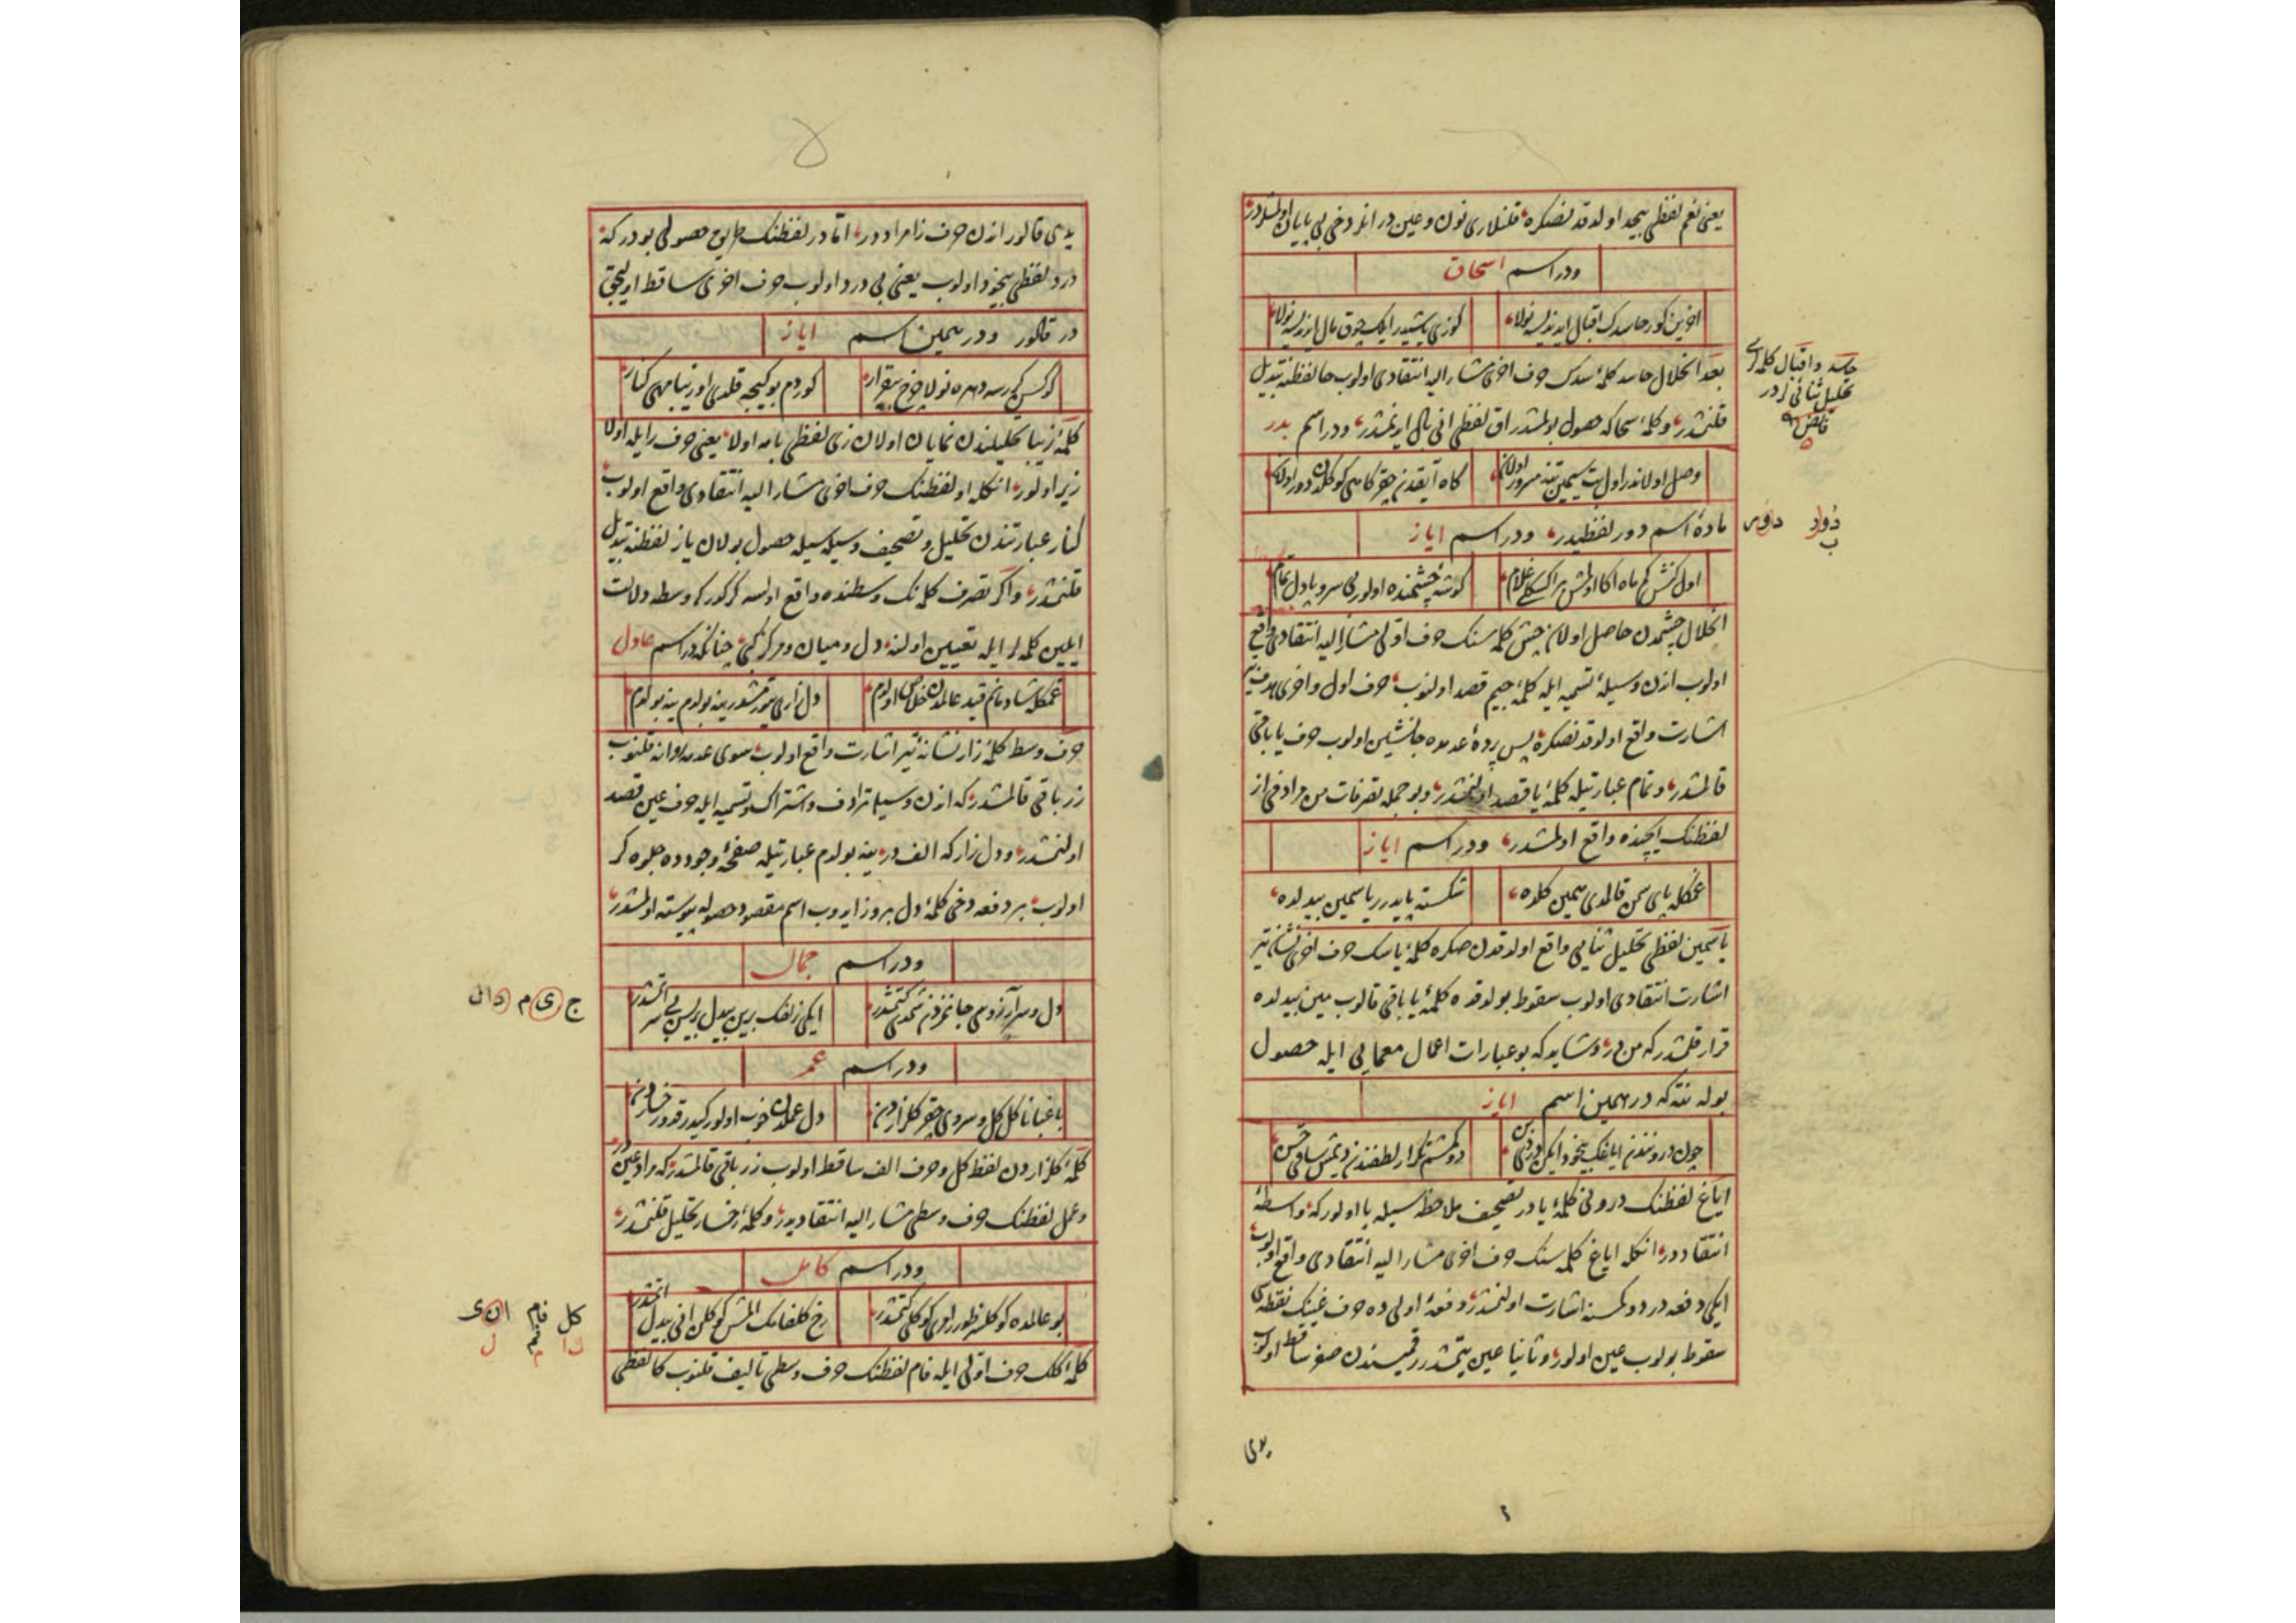 یعنی نعم لفظی بیحد اولدقدنصکره قلنلاری نون وعین در انلر دخی بی پایان اولمشلردر
ودر اسم اسحاق
اخرین کور حاسدک اقبال ایدینسه نولا
کوزی یاشیدر ایلک چوق مال ایدینسه نولا
بعد انحلال حاسد کلمهٔ سدک حرف اخری مشار الیه انتقادی اولوب حا لفظنه تبدیل
قلنمشدر وکلمهٔ سحا که حصول بولمشدر اق لفظی انی مال ایدنمشدر ودر اسم بدر
وصل اولاندر اول بت سیمین تنه مسرور اولان
کاه آیقدنم چقر کاهی کوکلدن دور اولان
مادهٔ اسم دور لفظیدر ودر اسم ایاز
اول کنش کم ماه اکا اولمش بر اکسکلی غلام
کوشهٔ چشمنده اولور بی سر و پا دل تمام
انحلال چشمدن حاصل اولان چش کلمه سنک حرف اولی مشار الیه انتقادی واقع
اولوب ازن وسیلهٔ تسمیه ایله کلمهٔ جیم قصد اولنوب حرف اول واخری هدف تیر
اشارت واقع اولدقدنصکره پس پردهٔ عدمده جانشین اولوب حرف یا باقی
قالمشدر وتمام عبارتیله کلمهٔ یا قصد اولنمشدر وبو جمله تصرفات من مرادفی از
لفظنک ایچنده واقع اولمشدر ودر اسم ایاز
غمکله پای سمن قالمدی سمین کلده
شکسته پایدر یاسمین بیدلده
یاسمین لفظی تحلیل ثنایی واقع اولدقدن صکره کلمهٔ یاسک حرف اخری نشانهٔ تیر
اشارت انتقادی اولوب سقوط بولدقده کلمهٔ یا باقی قالوب مین بیدلده
قرار قلمشدر که من در وشاید که بو عبارات اعمال معمایی ایله حصول
بوله نته که در همین اسم ایاز
چون درونندن ایاغک بیخود ایکن دردنی
دوکمشم تکرار لطفندن دیمش ساقی حسن
ایاغ لفظنک درونی کلمهٔ یا در تصحیف ملاحظه سیله با اولور که واسطهٔ
انتقاددر انکله ایاغ کلمه سنک حرف اخری مشار الیه انتقادی واقع اولوب
ایکی دفعه درد دوکمسنه اشارت اولنمشدر دفعهٔ اولی ده حرف غینک نقطه سی
سقوط بولوب عین اولور وثانیا عین یتمشدر رقمیسندن صفر ساقط اولوب
یدی
حاسد واقبال کلمه لری
تحلیل ثنائی در
یدی قالور ازن حرف زا مراددر اما در لفظنک طریق حصولی بودر که
درد لفظی بیخود اولوب یعنی بی درد اولوب حرف اخری ساقط اولیجق
در قالور ودر همین اسم ایاز
کوردم بو کیجه قلدی او زیبا مهی کنار
کلمهٔ زیبا تحلیلندن نمایان اولان زی لفظی بامه اولا یعنی حرف را ایله اولا
زیر اولور انکله او لفظنک حرف اخری مشار الیه انتقادی واقع اولوب
کنار عبارتندن تحلیل وتصحیف وسیله سیله حصول بولان یاز لفظنه تبدیل
قلنمشدر واکر تصرف کلمه نک وسطنده واقع اولسه کرکدر که وسطه دلالت
ایلین کلمه لر ایله تعیین اولنه دل ومیان ومرکز کبی چنانکه در اسم عادل
غمکله شادمانم قید عالمدن خلاص اولدم
دل زاری تیر مشدر ینه بولدم ینه بولدم
حرف وسط کلمهٔ زار نشانهٔ تیر اشارت واقع اولوب سوی عدمه روانه قلنوب
زر باقی قالمشدر که ازن وسیلهٔ ترادف واشتراک وتسمیه ایله حرف عین قصد
اولنمشدر ودل زار که الف در ینه بولدم عبارتیله صفحهٔ وجودده جلوه کر
اولوب بر دفعه دخی کلمهٔ دل بروز ایدوب اسم مقصود حصوله پیوسته اولمشدر
ودر اسم جمال
ودر اسم عمر
باغبانا کل کل و سروی چقر کلزاردن
دل عملدن خوب اولور کیدر قدور رخساردن
کلمهٔ کلزاردن لفظ کل وحرف الف ساقط اولوب زر باقی قالمشدر که مراد عین در
وعمل لفظنک حرف وسطی مشار الیه انتقادیدر وکلمهٔ رخسار تحلیل قلنمشدر
ودر اسم کامل
کلمهٔ کلک حرف اولی ایله فام لفظنک حرف وسطی تألیف قلنوب کا لفظی
ج ی م دال
کل فام